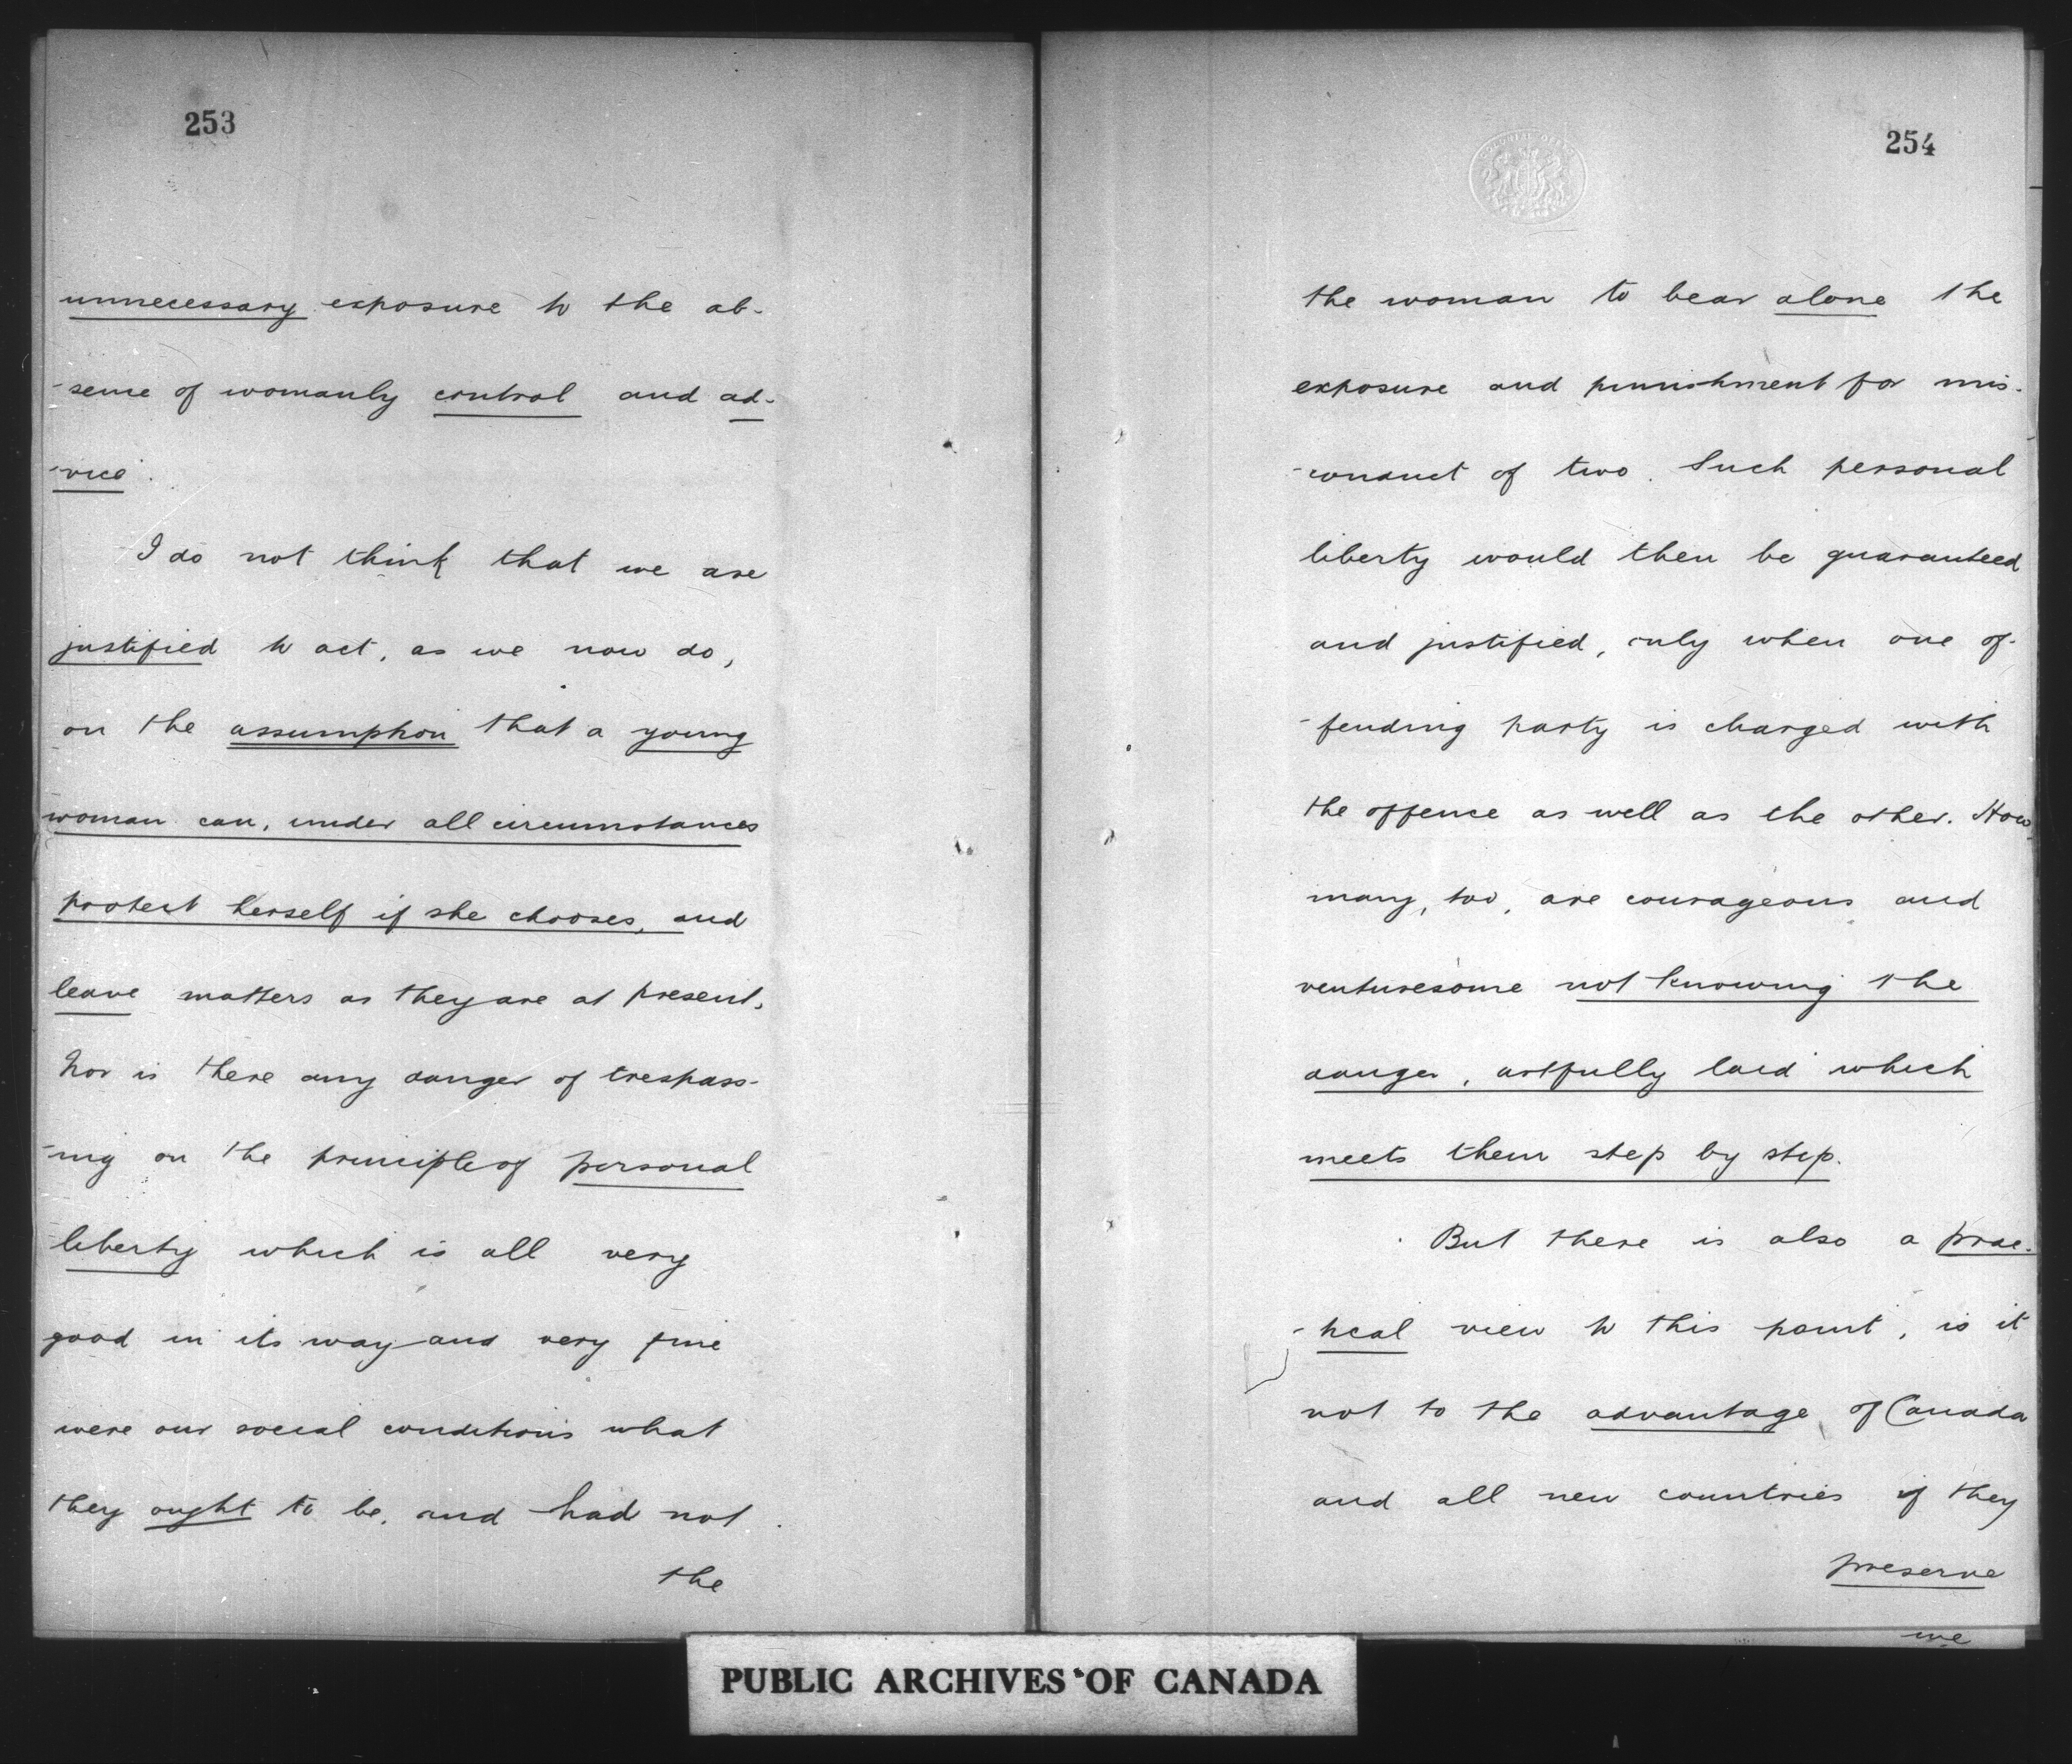 253
unnecessary exposure to the ab-
-sence of womanly control and ad-
-vice.
I do not think that we are
justified to act, as we now do,
on the assumption that a young
woman can, under all circumstances
protect herself if she chooses, and
leave matters as they are at present.
Nor is there any danger of trespass-
-ing on the principle of personal
liberty which is all very
good in its way and very fine
were our social conditions what
they ought to be, and had not
the
254
the woman to bear alone the
exposure and punishment for mis-
-conduct of two. Such personal
liberty would then be guaranteed
and justified, only when one of-
-fending party is charged with
the offence as well as the other. How
many, too, are courageous and
venturesome not knowing the
danger, artfully laid which
meets them step by step.
But there is also a prac-
-tical view to this point, is it
not to the advantage of Canada
and all new countries if they
preserve
we
PUBLIC ARCHIVES OF CANADA